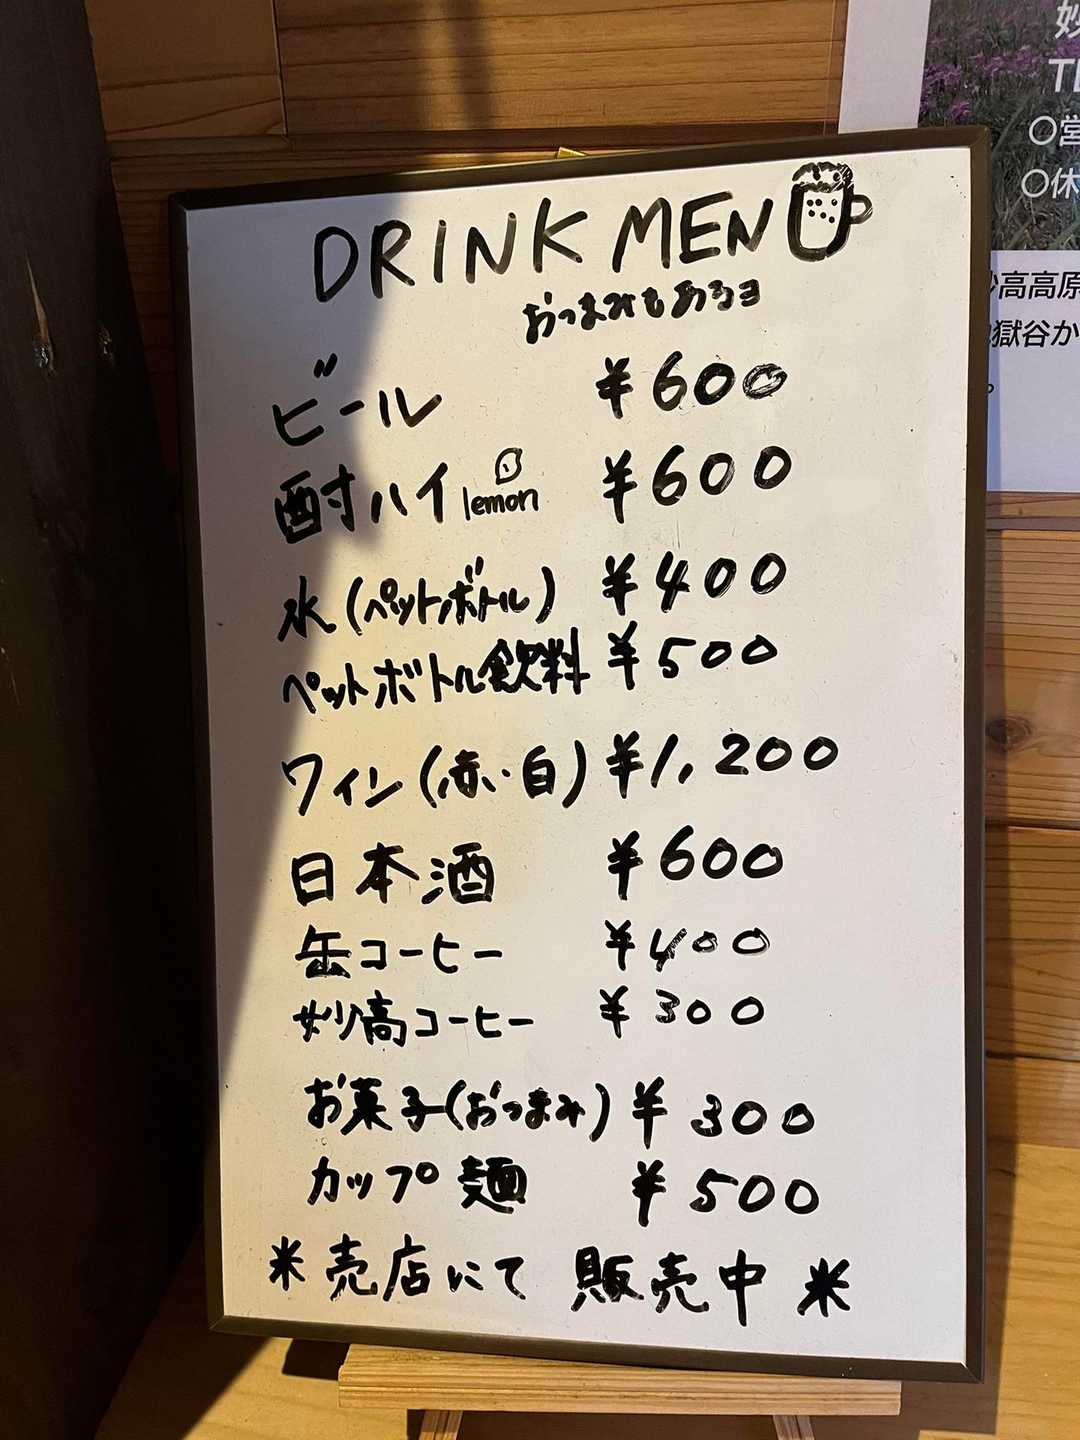 DRINK MENU
おつまみもあるヨ
ビール ¥600
酎ハイ lemon ¥600
水(ペットボトル) ¥400
ペットボトル飲料 ¥500
ワイン(赤・白) ¥1,200
日本酒 ¥600
缶コーヒー ¥400
妙高コーヒー ¥300
お菓子(おつまみ) ¥300
カップ麺 ¥500
※売店にて 販売中※
妙
TE
○営
○休
妙高高原
獄谷か
。